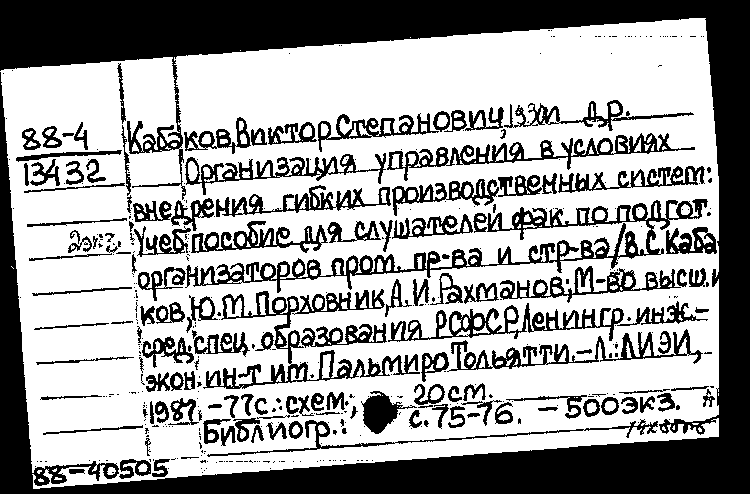 88-4 Кабаков, Виктор Степанович, 1930 и др.
13432 Организация управления в условиях
внедрения гибких производственных систем:
2экз. Учеб пособие для слушателей фак. по подгот.
организаторов пром. пр-ва и стр-ва/В.С.Каба
ков, Ю.М.Порховник, А.И.Рахманов; М-во высш. и
сред. спец. образования РСФСР, Ленингр. инж.-
экон. ин-т им. Пальмиро Тольятти. -Л.: ЛИЭИ,
1987 -77с.: схем.; 20см.
Библиогр.: с. 75-76. - 500экз.
88-40505